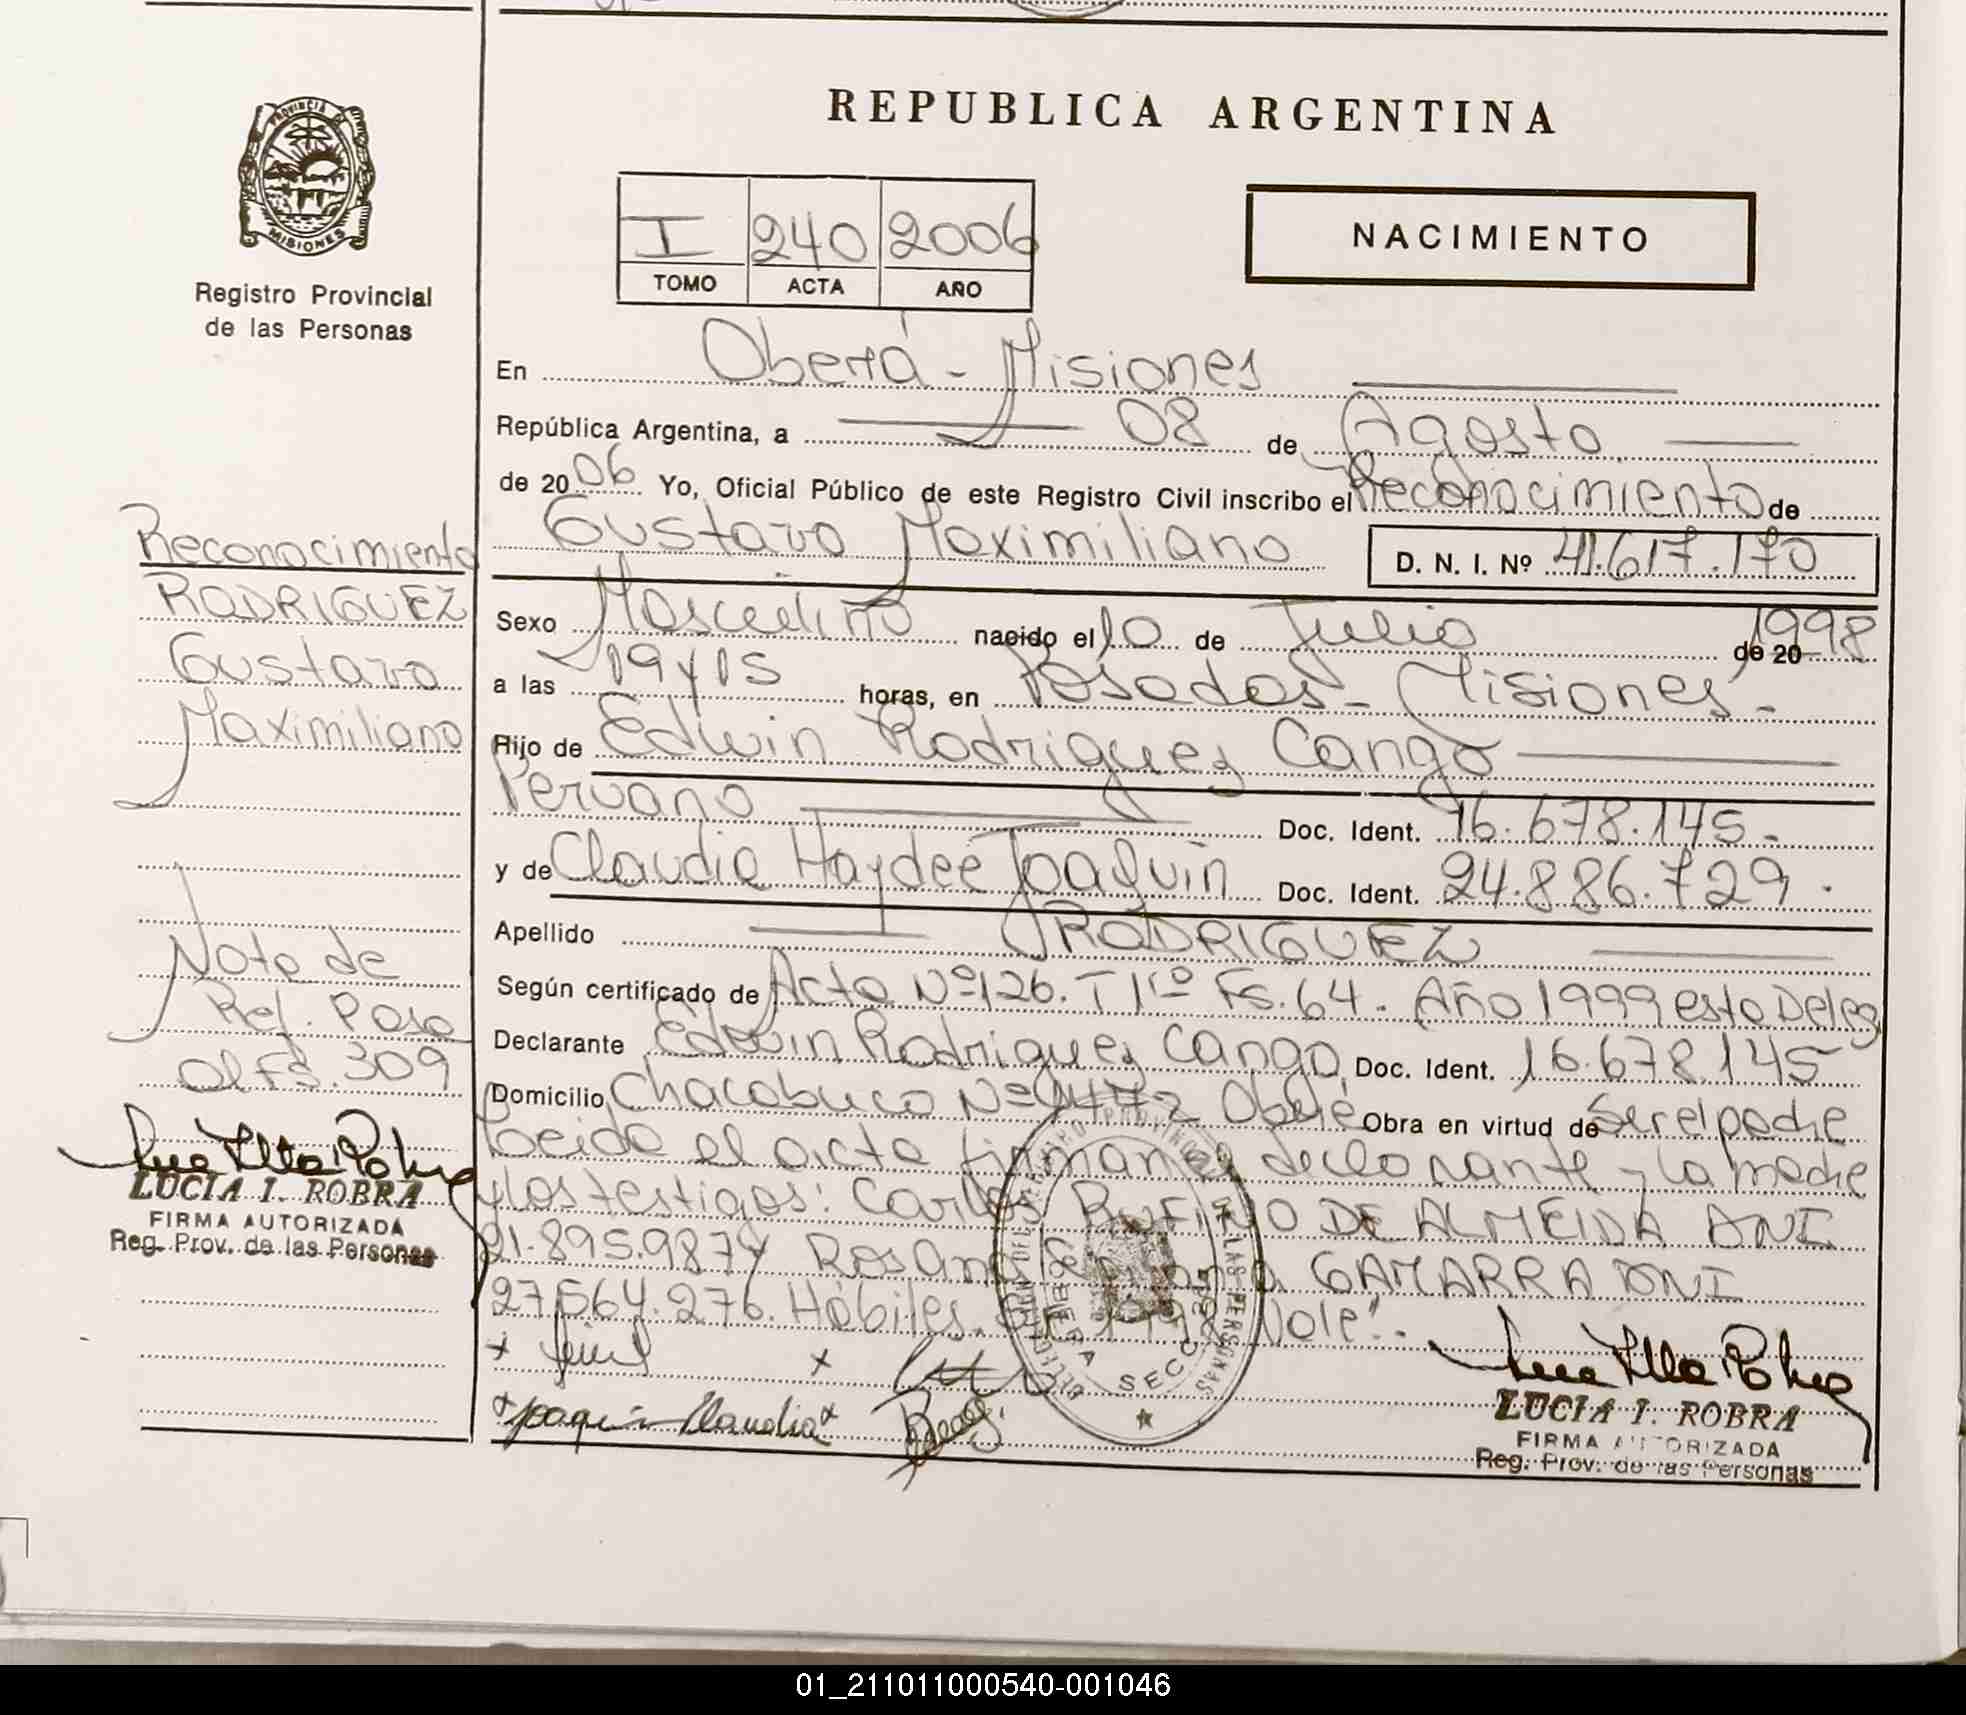 REPUBLICA ARGENTINA
PROVINCIA DE
MISIONES
Registro Provincial
de las Personas
I 240 2006
TOMO ACTA AÑO
NACIMIENTO
En Oberá - Misiones
República Argentina, a 08 de Agosto
de 2006 Yo, Oficial Público de este Registro Civil inscribo el Reconocimiento de
Gustavo Maximiliano D. N. I. Nº 41.617.170
Sexo Masculino nacido el 10 de Julio de 20 1998
a las 19 y 15 horas, en Posadas - Misiones -
Hijo de Edwin Rodriguez Cango
Peruano Doc. Ident. 16.678.145.
y de Claudia Haydeé Joaquin Doc. Ident. 24.886.729.
Apellido RODRIGUEZ
Según certificado de Acta Nº 126. T 1ro Fs. 64. Año 1999 esta Deleg
Declarante Edwin Rodriguez Cango Doc. Ident. 16.678.145
Domicilio Chacabuco Nº Oberá Obra en virtud de Ser el padre
Leida el acta firman declarante y la madre
y los testigos: Carlos RUFINO DE ALMEIDA DNI
21.895.987 y Rosana GAMARRA DNI
27.564.276. Hábiles. 1998 Vale".
Joaquin Claudia
LUCIA I. ROBRA
FIRMA AUTORIZADA
Reg. Prov. de las Personas
Reconocimiento
RODRIGUEZ
Gustavo
Maximiliano
Nota de
Ref. Pasa
al Fs. 309
LUCIA I. ROBRA
FIRMA AUTORIZADA
Reg. Prov. de las Personas
01_211011000540-001046